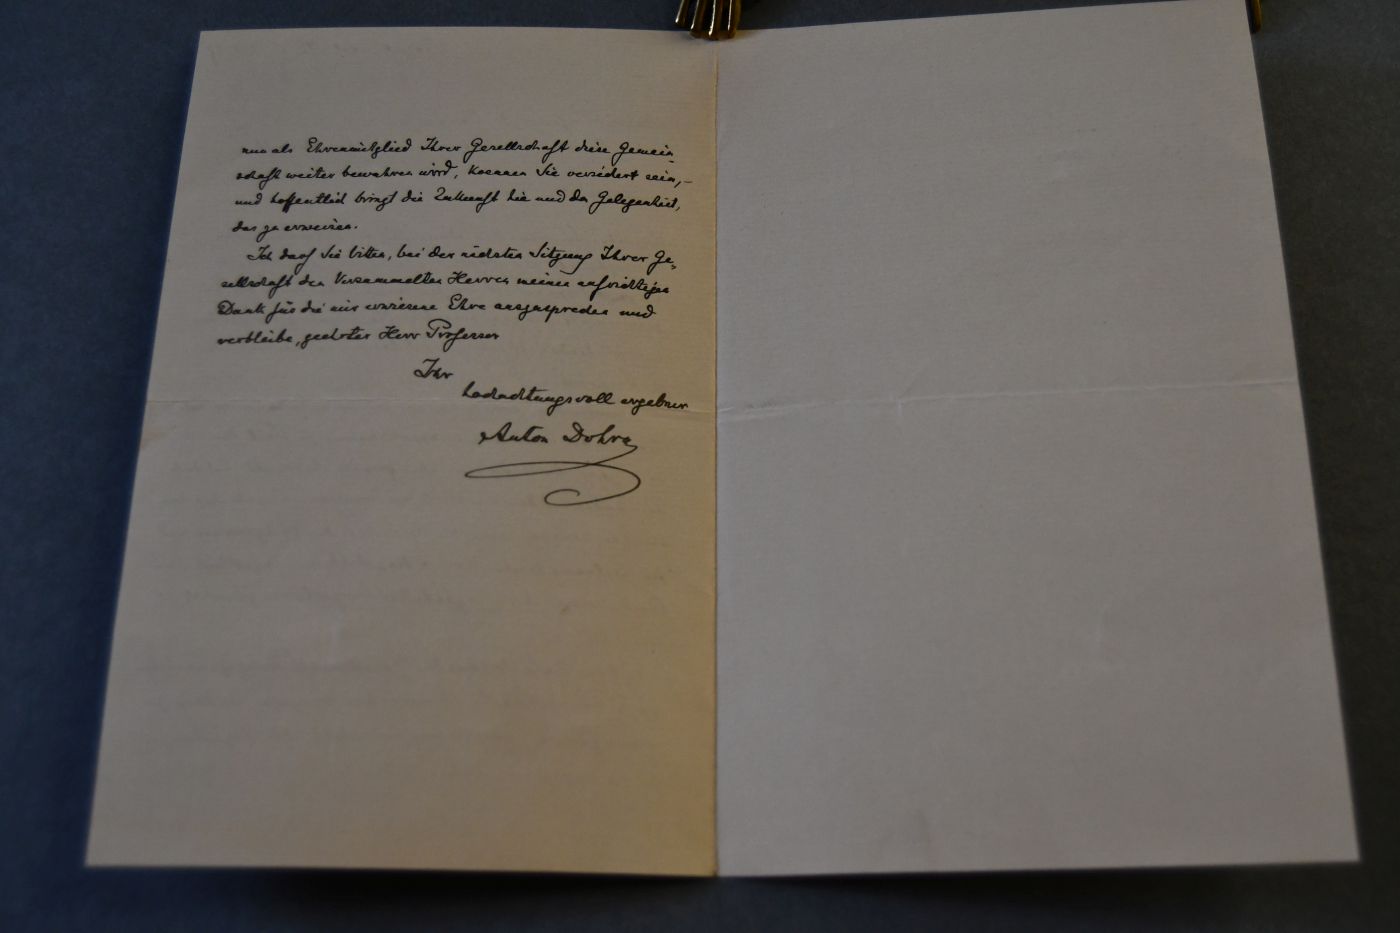 nun als Ehrenmitglied Ihrer Gesellschaft diese Gemein-
schaft weiter bewahren wird, koennen Sie versichert sein, –
und hoffentlich bringt die Zukunft hie und da Gelegenheit,
das zu erweisen.
Ich darf Sie bitten, bei der nächsten Sitzung Ihrer Ge-
sellschaft den Versammelten Herren meinen aufrichtigen
Dank für die mir erwiesene Ehre auszusprechen und
verbleibe, geehrter Herr Professor
Ihr
hochachtungsvoll ergebner
Anton Dohrn